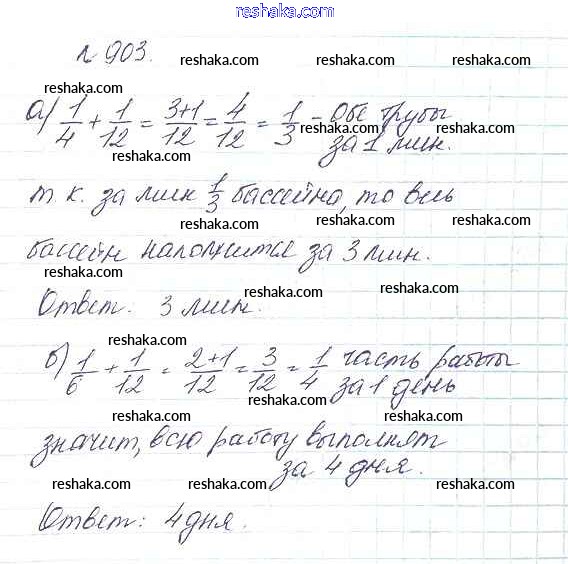 reshaka.com
№ 903. reshaka.com reshaka.com
reshaka.com reshaka.com reshaka.com
а) 1/4 + 1/12 = 3+1/12 = 4/12 = 1/3 - Обе трубы
за 1 мин.
reshaka.com reshaka.com reshaka.com
т. к. за мин 1/3 бассейна, то весь
reshaka.com reshaka.com
бассейн наполнится за 3 мин.
reshaka.com reshaka.com reshaka.com
Ответ: 3 мин.
reshaka.com reshaka.com
б) 1/6 + 1/12 = 2+1/12 = 3/12 = 1/4 часть работы
за 1 день
reshaka.com reshaka.com reshaka.com
значит, всю работу выполнят
за 4 дня.
reshaka.com reshaka.com reshaka.com
Ответ: 4 дня.
reshaka.com reshaka.com